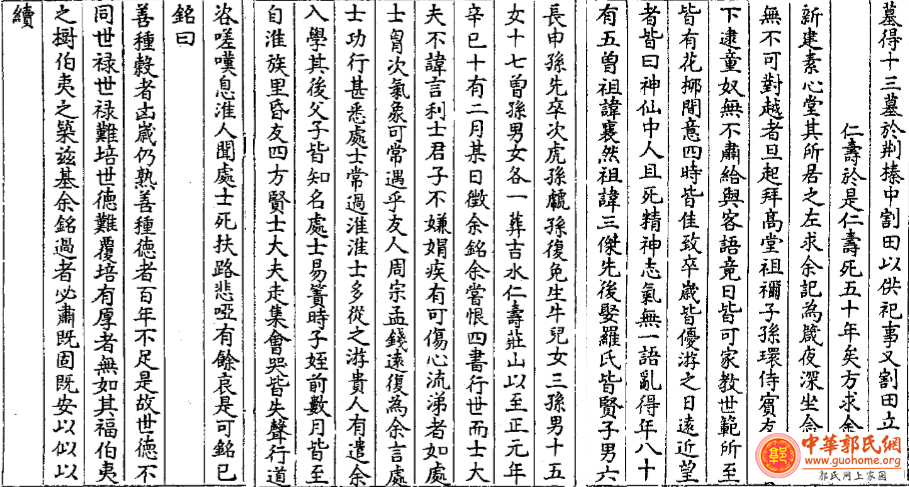 墓得十三墓於荆榛中割田以供祀事又割田立
仁壽於是仁壽死五十年矣方求余
新建素心堂其所居之左求余記為嚴夜深坐念
無不可對越者旦起拜高堂祖禰子孫環侍賓友
下逮童奴無不肅給與客語竟日皆可家教世範所至
皆有花柳間意四時皆佳致卒歲皆優游之日遠近望
者皆曰神仙中人且死精神志氣無一語亂得年八十
有五曾祖諱襄然祖諱三傑先後娶羅氏皆賢子男六
長申孫先卒次虎孫麟孫復免生牛兒女三孫男十五
女十七曾孫男女各一葬吉水仁壽莊山以至正元年
辛巳十有二月某日徵余銘余嘗恨四書行世而士大
夫不諱言利士君子不嫌媢疾有可傷心流涕者如處
士胷次氣象可常遇乎友人周宗孟錢遠復為余言處
士功行甚悉處士常過淮淮士多從之游貴人有遣余
入學其後父子皆知名處士易簀時子姪前數月皆至
自淮族里昏友四方賢士大夫走集會哭皆失聲行道
咨嗟嘆息淮人聞處士死扶路悲啞有餘哀是可銘已
銘曰
善種穀者凶歲仍熟善種德者百年不足是故世德不
同世禄世禄難培世德難覆培有厚者無如其福伯夷
之樹伯夷之築兹基余銘過者必肅既固既安以似以
續
中華郭氏網
www.guohome.org
郭氏网上家園